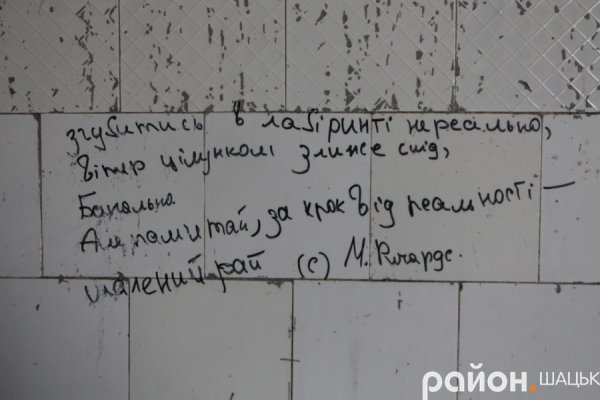 згубитись в лабіринті нереально,
Вітер цілунком злиже слід,
Банально
Але пам'ятай, за крок від реальності —
шалений рай (с) М. Річардс.
район.шацьк